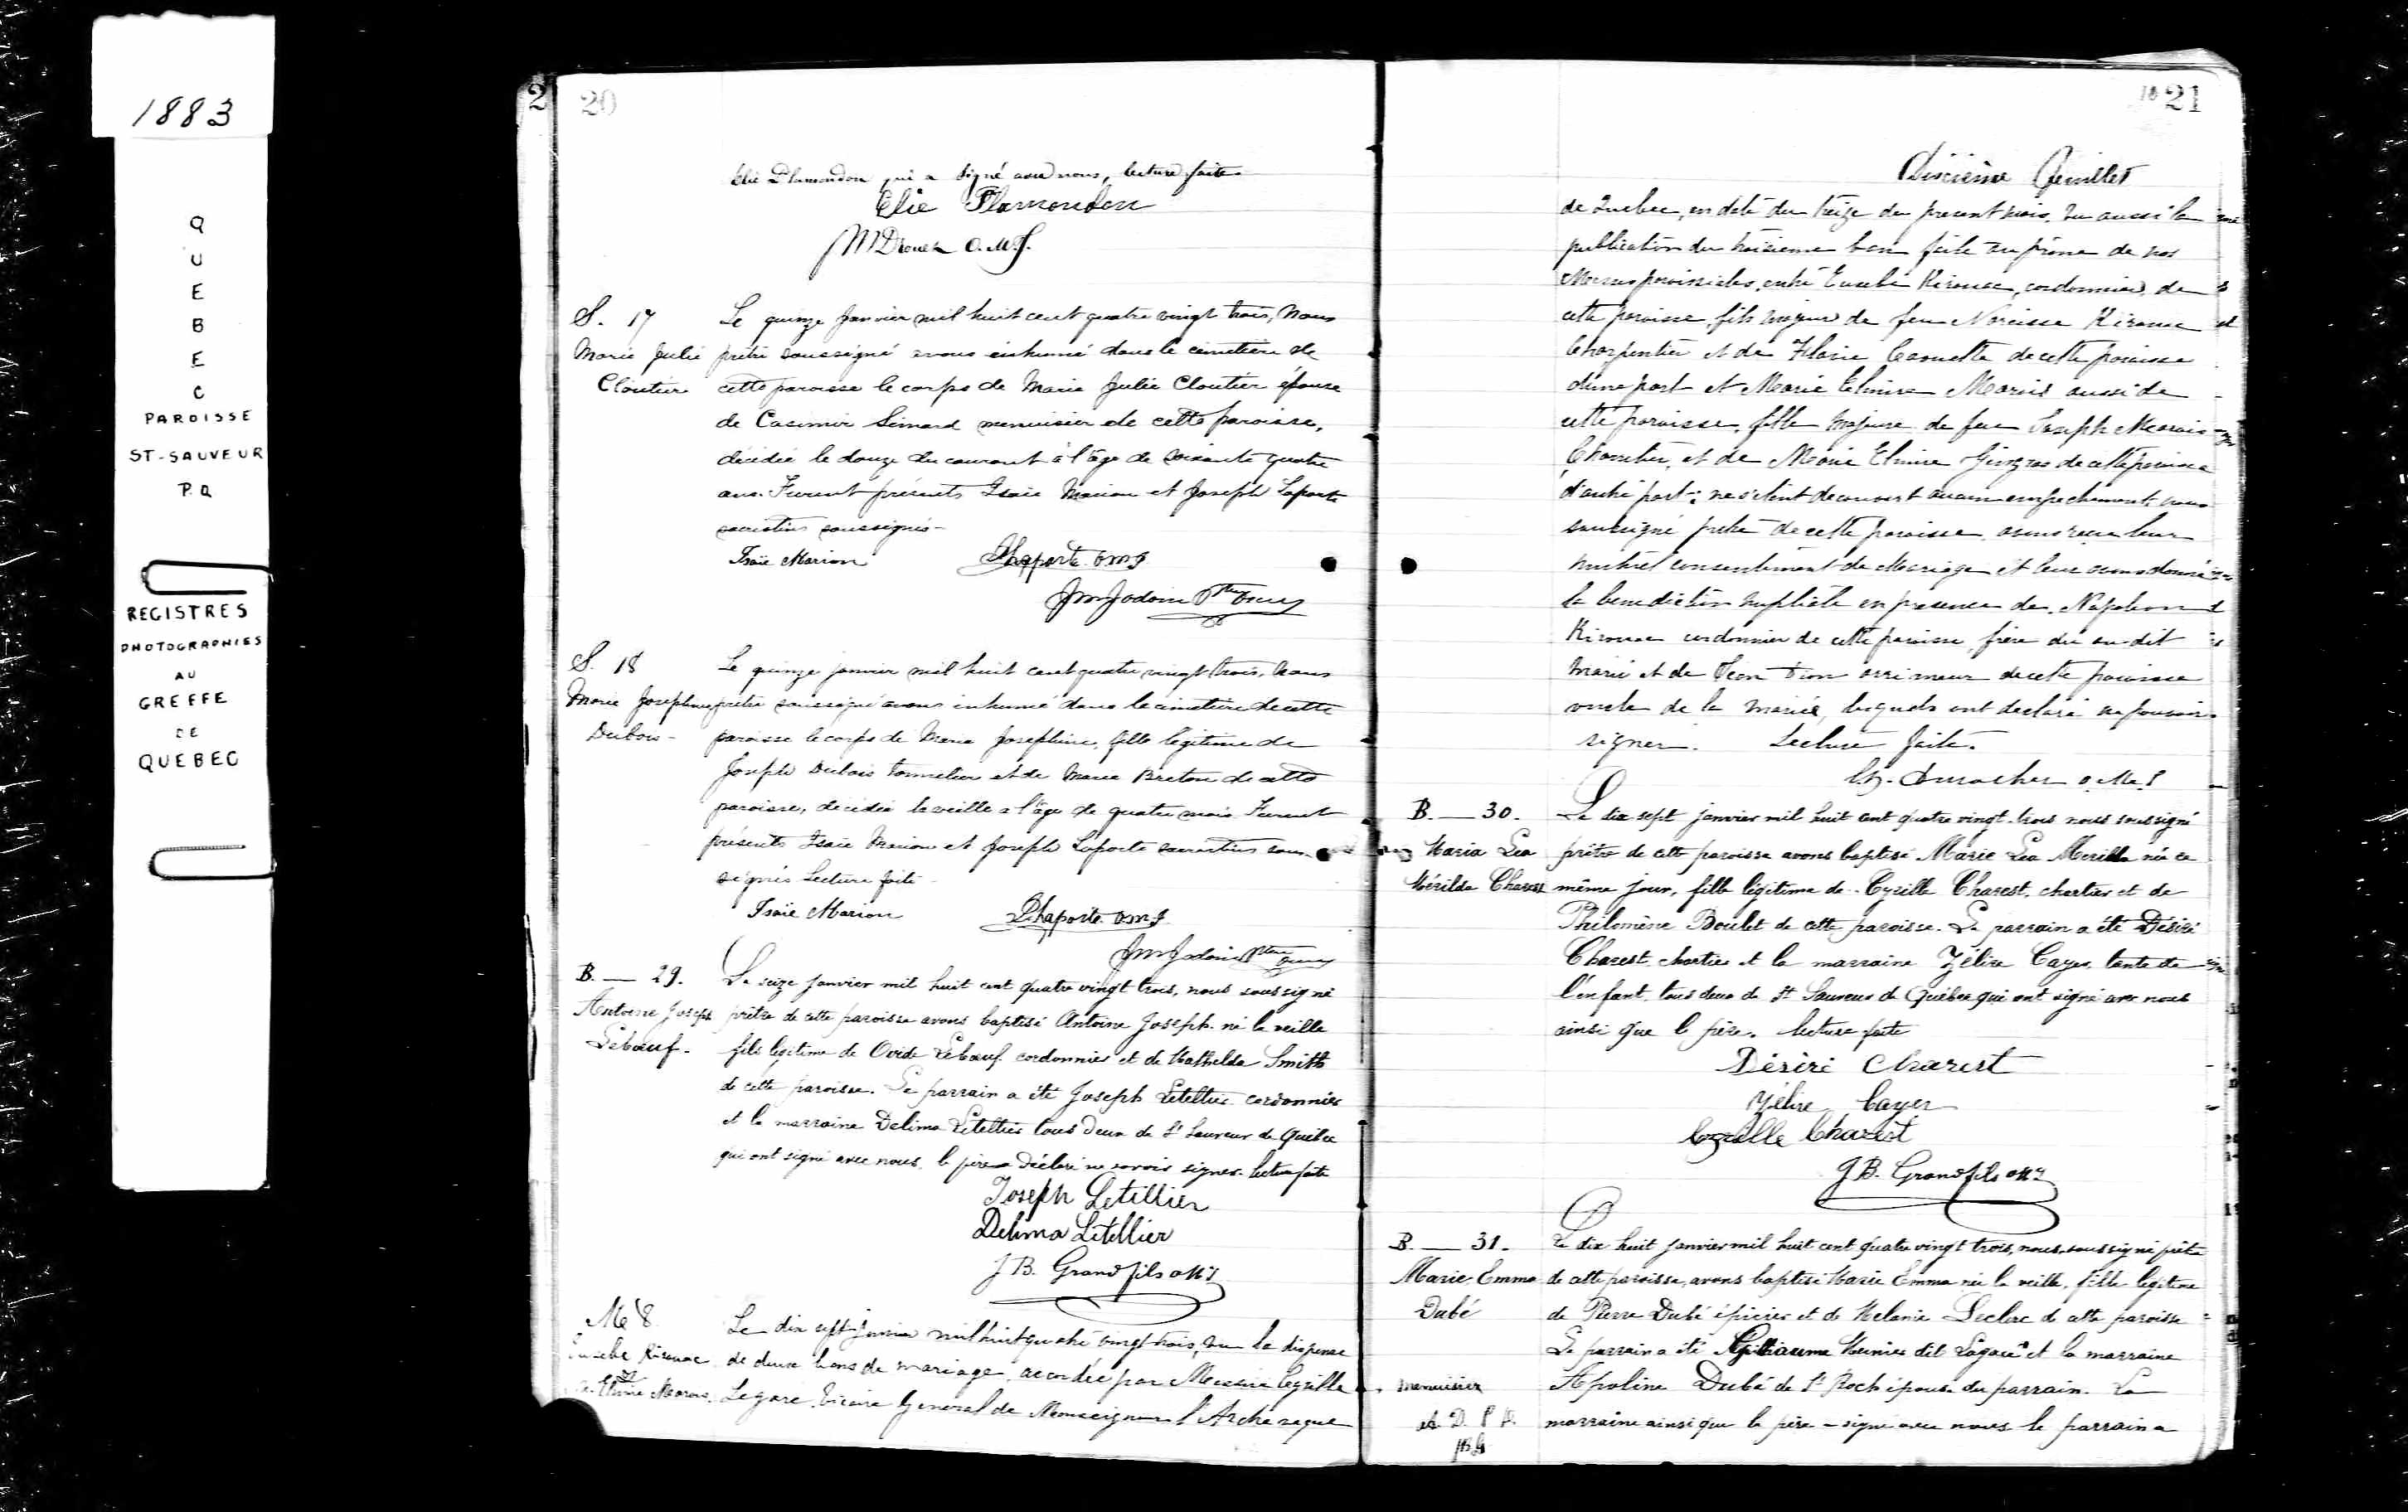 1883
QUEBEC
PAROISSE
ST-SAUVEUR
P.Q
REGISTRES
PHOTOGRAPHIES
AU
GREFFE
DE
QUEBEC
2
20
Elie Plamondon qui a signé avec nous, lecture faite
Elie Plamondon
Drouet O.M.J.
S. 17
Marie Julie
Cloutier
Le quinze Janvier mil huit cent quatre vingt trois, Nous
prêtre soussigné avons inhumé dans le cimetière de
cette paroisse le corps de Marie Julie Cloutier épouse
de Casimir Simard menuisier de cette paroisse,
décédée le douze du courant à l'âge de soixante quatre
ans. Furent présents Isaïe Marion et Joseph Laporte
sacristins soussignés -
Isaïe Marion Laporte O.M.J
Jodoin Ptre
S. 18
Marie Josephine
Dubois -
Le quinze janvier mil huit cent quatre vingt trois, nous
prêtre soussigné avons inhumé dans le cimetière de cette
paroisse le corps de Marie Josephine, fille legitime de
Joseph Dubois tonnelier et de Marie Breton de cette
paroisse, décédée la veille a l'âge de quatre mois Furent
présents Isaïe Marion et Joseph Laporte sacristins sous-
signés Lecture faite -
Isaïe Marion Laporte O.M.J
Jodoin Ptre
B. — 29.
Antoine Joseph
Lebœuf.
Le seize janvier mil huit cent quatre vingt trois, nous soussigné
prêtre de cette paroisse avons baptisé Antoine Joseph né la veille
fils legitime de Ovide Lebœuf cordonnier et de Mathilda Smith
de cette paroisse. Le parrain a été Joseph Letellier cordonnier
et la marraine Delima Letellier tous deux de St Sauveur de Québec
qui ont signé avec nous, le père a déclaré ne savoir signer. lecture faite
Joseph Letellier
Delima Letellier
J B. Grandfils OMI
M 8.
Eusebe Kirouac
et
Elmire Marois.
Le dix sept janvier mil huit quatre vingt trois, vu la dispense
de deux bans de mariage accordée par Messire Cyrille
Legaré Vicaire Général de Monseigneur l'Archevêque
10 21
Dixième Feuillet
de Quebec, en date du treize du present mois, vu aussi la
publication du troisième ban faite au prône de nos
Messes paroissiales, entre Eusebe Kirouac, cordonnier, de
cette paroisse, fils majeur de feu Narcisse Kirouac
Charpentier et de Flavie Caouette de cette paroisse
d'une part et Marie Elmire Marois aussi de
cette paroisse, fille majeure de feu Joseph Marois
Charretier, et de Marie Elmire Gingras de cette paroisse
d'autre part; ne s'etant decouvert aucun empechement, nous
soussigné prêtre de cette paroisse avons reçu leur
mutuel consentement de Mariage et leur avons donné
la benediction nuptiale en presence de Napoleon
Kirouac cordonnier de cette paroisse, frère du susdit
marié et de Jean Dion arrimeur de cette paroisse
oncle de la mariée, lesquels ont declaré ne pouvoir
signer. Lecture faite.
Durocher O.M.I
B. — 30.
Maria Lea
Mérilda Charest
Le dix sept janvier mil huit cent quatre vingt trois nous soussigné
prêtre de cette paroisse avons baptisé Marie Lea Merilda née ce
même jour, fille légitime de Cyrille Charest, chartier et de
Philomène Boulet de cette paroisse. Le parrain a été Désiré
Charest chartier et la marraine Zélire Cayer, tante de
l'enfant tous deux de St Sauveur de Québec qui ont signé avec nous
ainsi que le père. lecture faite
Désiré Charest
Zélire Cayer
Cyrille Charest
J B. Grandfils OMI
B. — 31.
Marie Emma
Dubé
Le dix huit janvier mil huit cent quatre vingt trois, nous, soussigné prêtre
de cette paroisse, avons baptisé Marie Emma née la veille, fille legitime
de Pierre Dubé épicier et de Melanie Leclerc de cette paroisse
Le parrain a été Guillaume Meunier dit Lagacé et la marraine
menuisier
Apoline Dubé de St Roch épouse du parrain. La
marraine ainsi que le père a signé avec nous le parrain a
A. D. P. D.
JBG